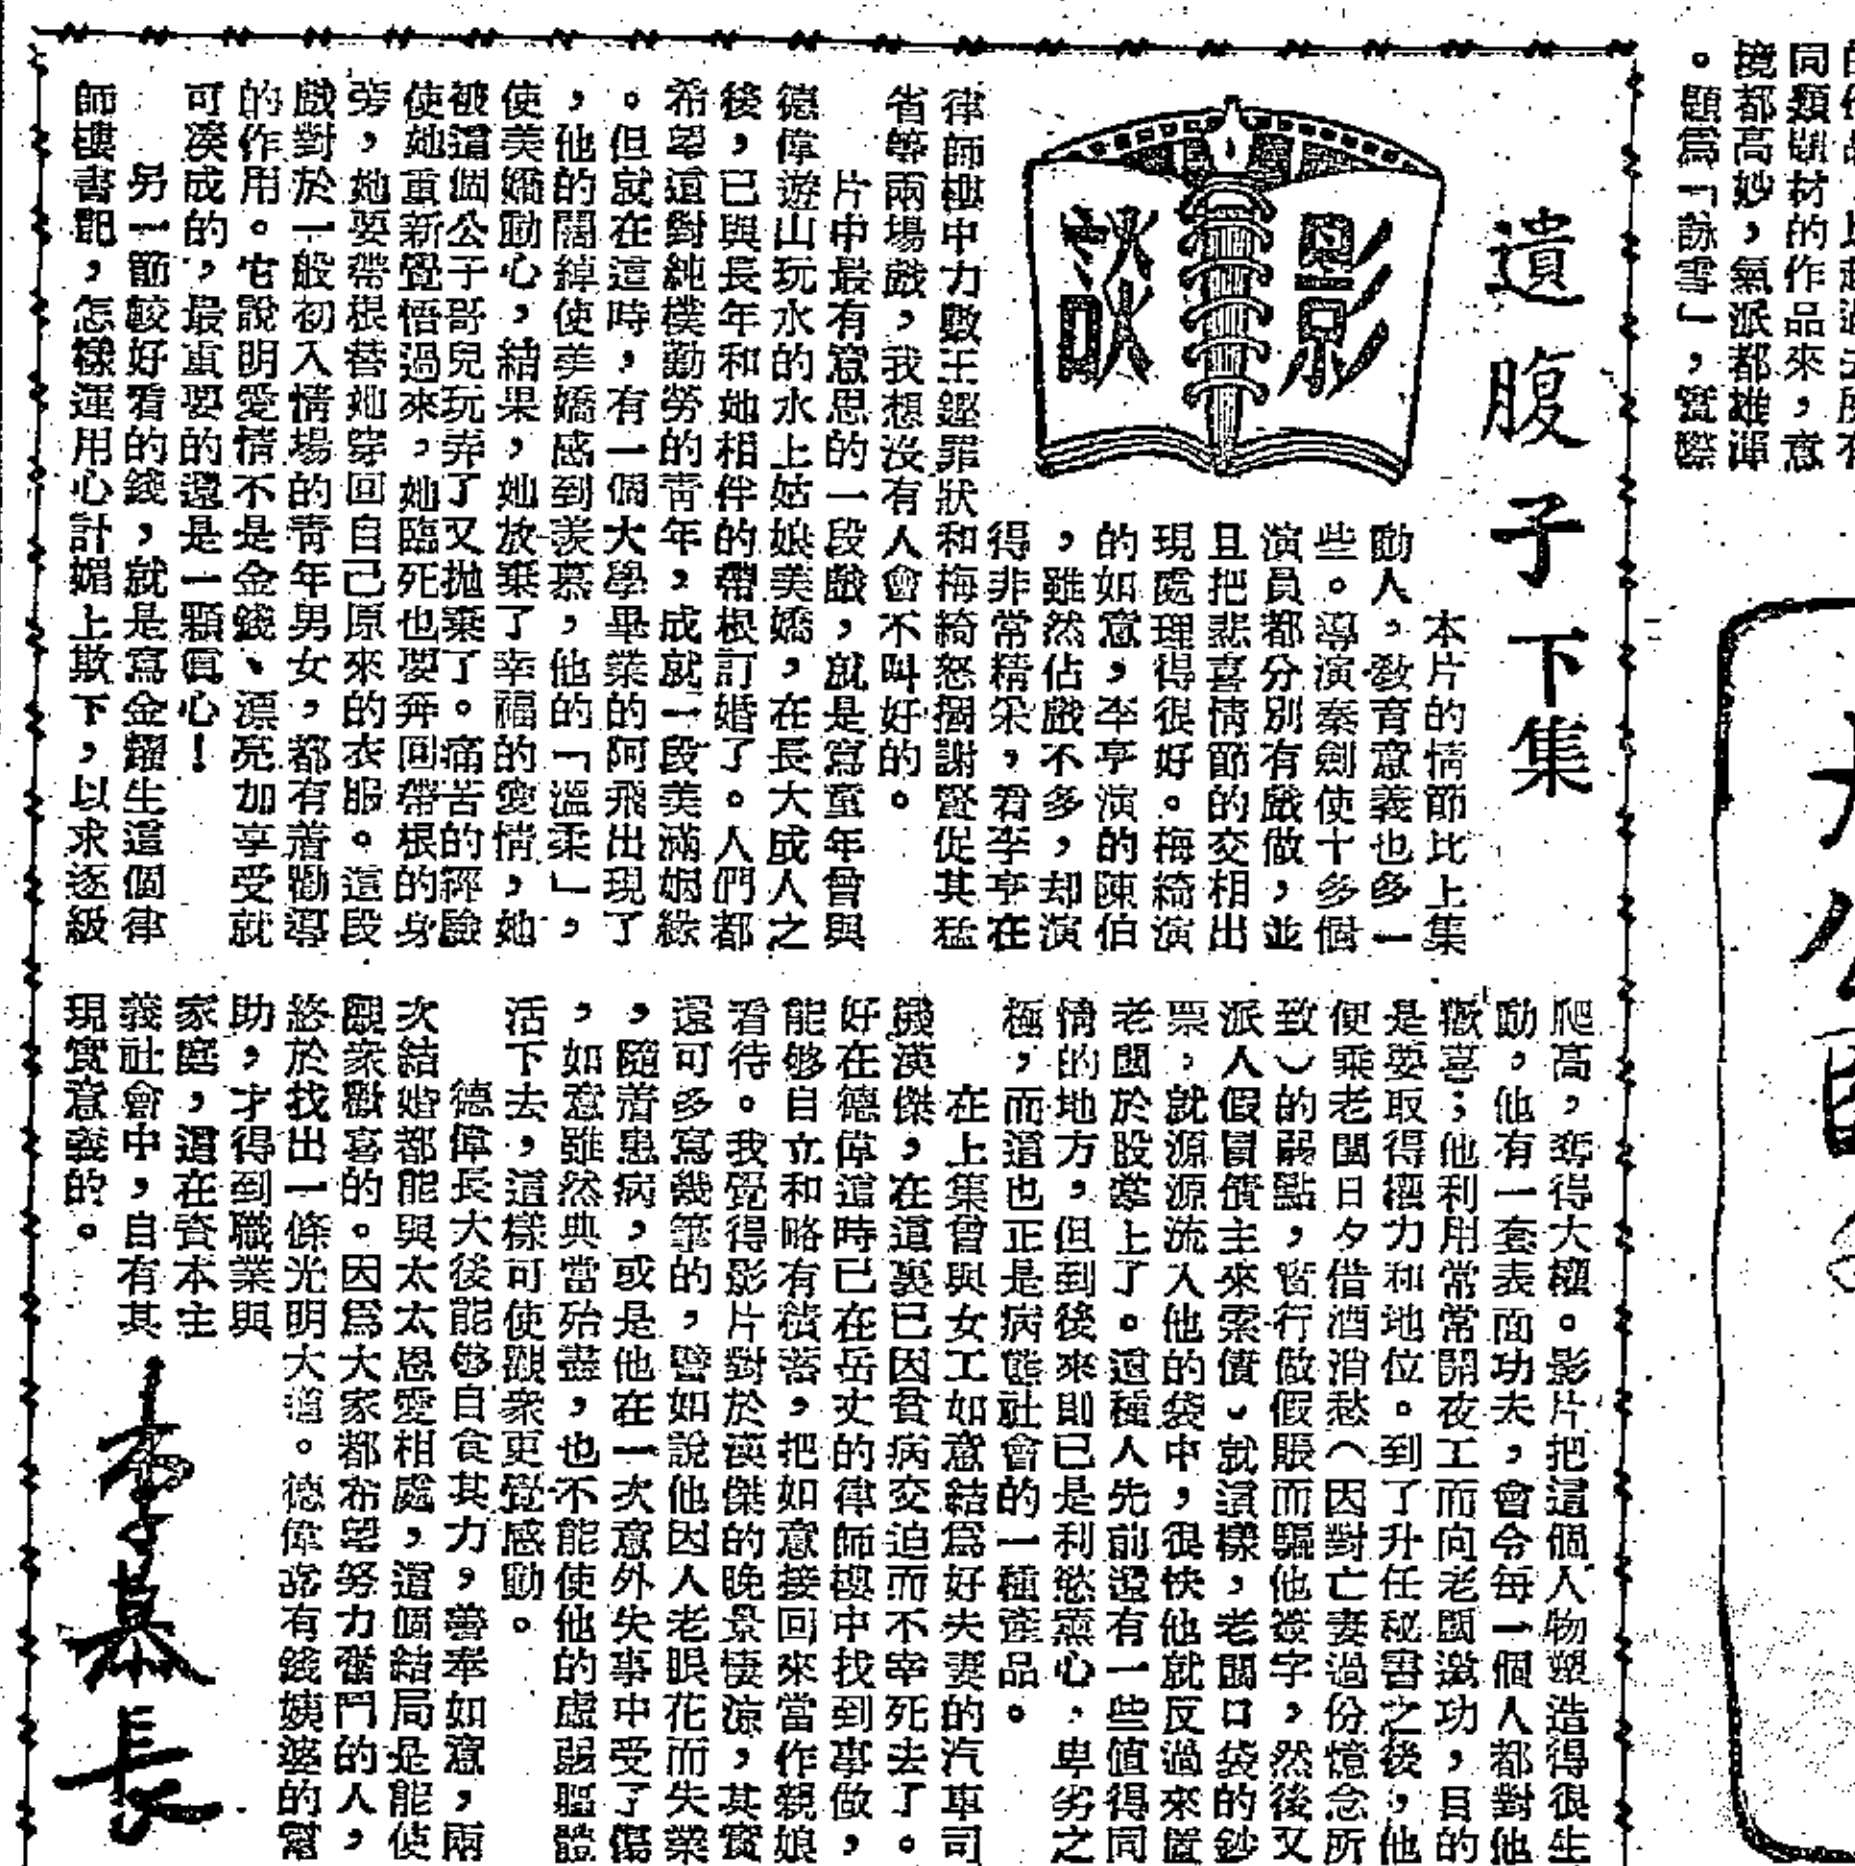 同類題材的作品來，意
境都高妙，氣派都雄渾
。題爲「詠雪」，實際
遺腹子下集
影談
本片的情節比上集
動人，敎育意義也多一
些。導演秦劍使十多個
演員都分別有戲做，並
且把悲喜情節的交相出
現處理得很好。梅綺演
的如意，李亨演的陳伯
，雖然佔戲不多，却演
得非常精采，看李亨在
律師樓中力數王鏗罪狀和梅綺怒摑謝賢促其猛
省等兩場戲，我想沒有人會不叫好的。
片中最有意思的一段戲，就是寫童年曾與
德偉遊山玩水的水上姑娘美嬌，在長大成人之
後，已與長年和她相伴的帶根訂婚了。人們都
希望這對純樸勤勞的靑年，成就一段美滿姻緣
。但就在這時，有一個大學畢業的阿飛出現了
，他的闊綽使美嬌感到羨慕，他的「溫柔」，
使美嬌動心，結果，她放棄了幸福的愛情，她
被這個公子哥兒玩弄了又拋棄了。痛苦的經驗
使她重新覺悟過來，她臨死也要奔回帶根的身
旁，她要帶根替她穿回自己原來的衣服。這段
戲對於一般初入情場的靑年男女，都有着勸導
的作用。它說明愛情不是金錢、漂亮加享受就
可湊成的，最重要的還是一顆眞心！
另一節較好看的錢，就是寫金耀生這個律
師樓書記，怎樣運用心計媚上欺下，以求逐級
爬高，奪得大權。影片把這個人物塑造得很生
動，他有一套表面功夫，會令每一個人都對他
歡喜；他利用常常開夜工而向老闆邀功，目的
是要取得權力和地位。到了升任秘書之後，他
便乘老闆日夕借酒消愁（因對亡妻過份憶念所
致）的弱點，實行做假賬而騙他簽字，然後又
派人假冒債主來索債。就這樣，老闆口袋的鈔
票，就源源流入他的袋中，很快他就反過來置
老闆於股掌上了。這種人先前還有一些值得同
情的地方，但到後來則已是利慾薰心，卑劣之
極，而這也正是病態社會的一種產品。
在上集曾與女工如意結爲好夫妻的汽車司
機漢傑，在這裏已因貧病交迫而不幸死去了。
好在德偉這時已在岳丈的律師樓中找到事做，
能够自立和略有積蓄，把如意接回來當作親娘
看待。我覺得影片對於漢傑的晚景悽涼，其實
還可多寫幾筆的，譬如說他因人老眼花而失業
，隨着患病，或是他在一次意外失事中受了傷
，如意雖然典當殆盡，也不能使他的虛弱軀體
活下去，這樣可使觀衆更覺感動。
德偉長大後能够自食其力，善奉如意，兩
次結婚都能與太太恩愛相處，這個結局是能使
觀衆歡喜的。因爲大家都希望努力奮鬥的人，
終於找出一條光明大道。德偉靠有錢姨婆的幫
助，才得到職業與
家庭，這在資本主
義社會中，自有其
現實意義的。
李慕長